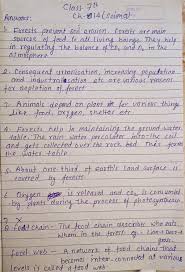 Class 7th
Ch-14 (Science)
Answers:
1. Forests prevent soil erosion. Forests are main
sources of food to all living beings. They help
in regulating the balance of CO₂ and O₂ in the
atmosphere
2. Consequent urbanisation, increasing population
and industrialisation etc are various reasons
for depletion of forest
3. Animals depend on plants for various things
like food, oxygen, shelter etc.
4. Forests help in maintaining the ground water
table. The rain water percolates into the soil
and gets collected over the rock bed. Thus forms
the water table
5. About one third of earth's land surface is
covered by forests
6. Oxygen is released and CO₂ is consumed
by plants during the process of photosynthesis
7. X
8. Food chain - The food chain describe who eats
whom in the forest eg:
food web - A network of food chain that
becomes inter-connected at various
levels is called a food web